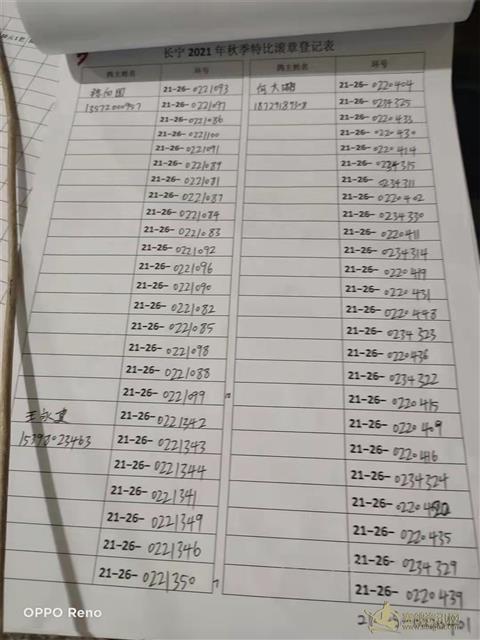 长宁 2021 年秋季特比滚章登记表
鸽主姓名 环号 鸽主姓名 环号
21-26-0221093 何大湖 21-26-0220404
13572000957 21-26-0221097 21-26-0234325
21-26-0221086 21-26-0220433
21-26-0221100 21-26-0220430
21-26-0221091 21-26-0220414
21-26-0221089 21-26-0234315
21-26-0221081 21-26-0234311
21-26-0221087 21-26-0220402
21-26-0221084 21-26-0234330
21-26-0221083 21-26-0220411
21-26-0221092 21-26-0234314
21-26-0221096 21-26-0220419
21-26-0221090 21-26-0220431
21-26-0221082 21-26-0220448
21-26-0221085 21-26-0234323
21-26-0221098 21-26-0220436
21-26-0221088 21-26-0234322
21-26-0221099 21-26-0220415
王永建 21-26-0221342 21-26-0220409
21-26-0221343 21-26-0220416
21-26-0221344 21-26-0234324
21-26-0221341 21-26-
21-26-0221349 21-26-0220435
21-26-0221346 21-26-0234329
21-26-0221350 21-26-0220439
OPPO Reno